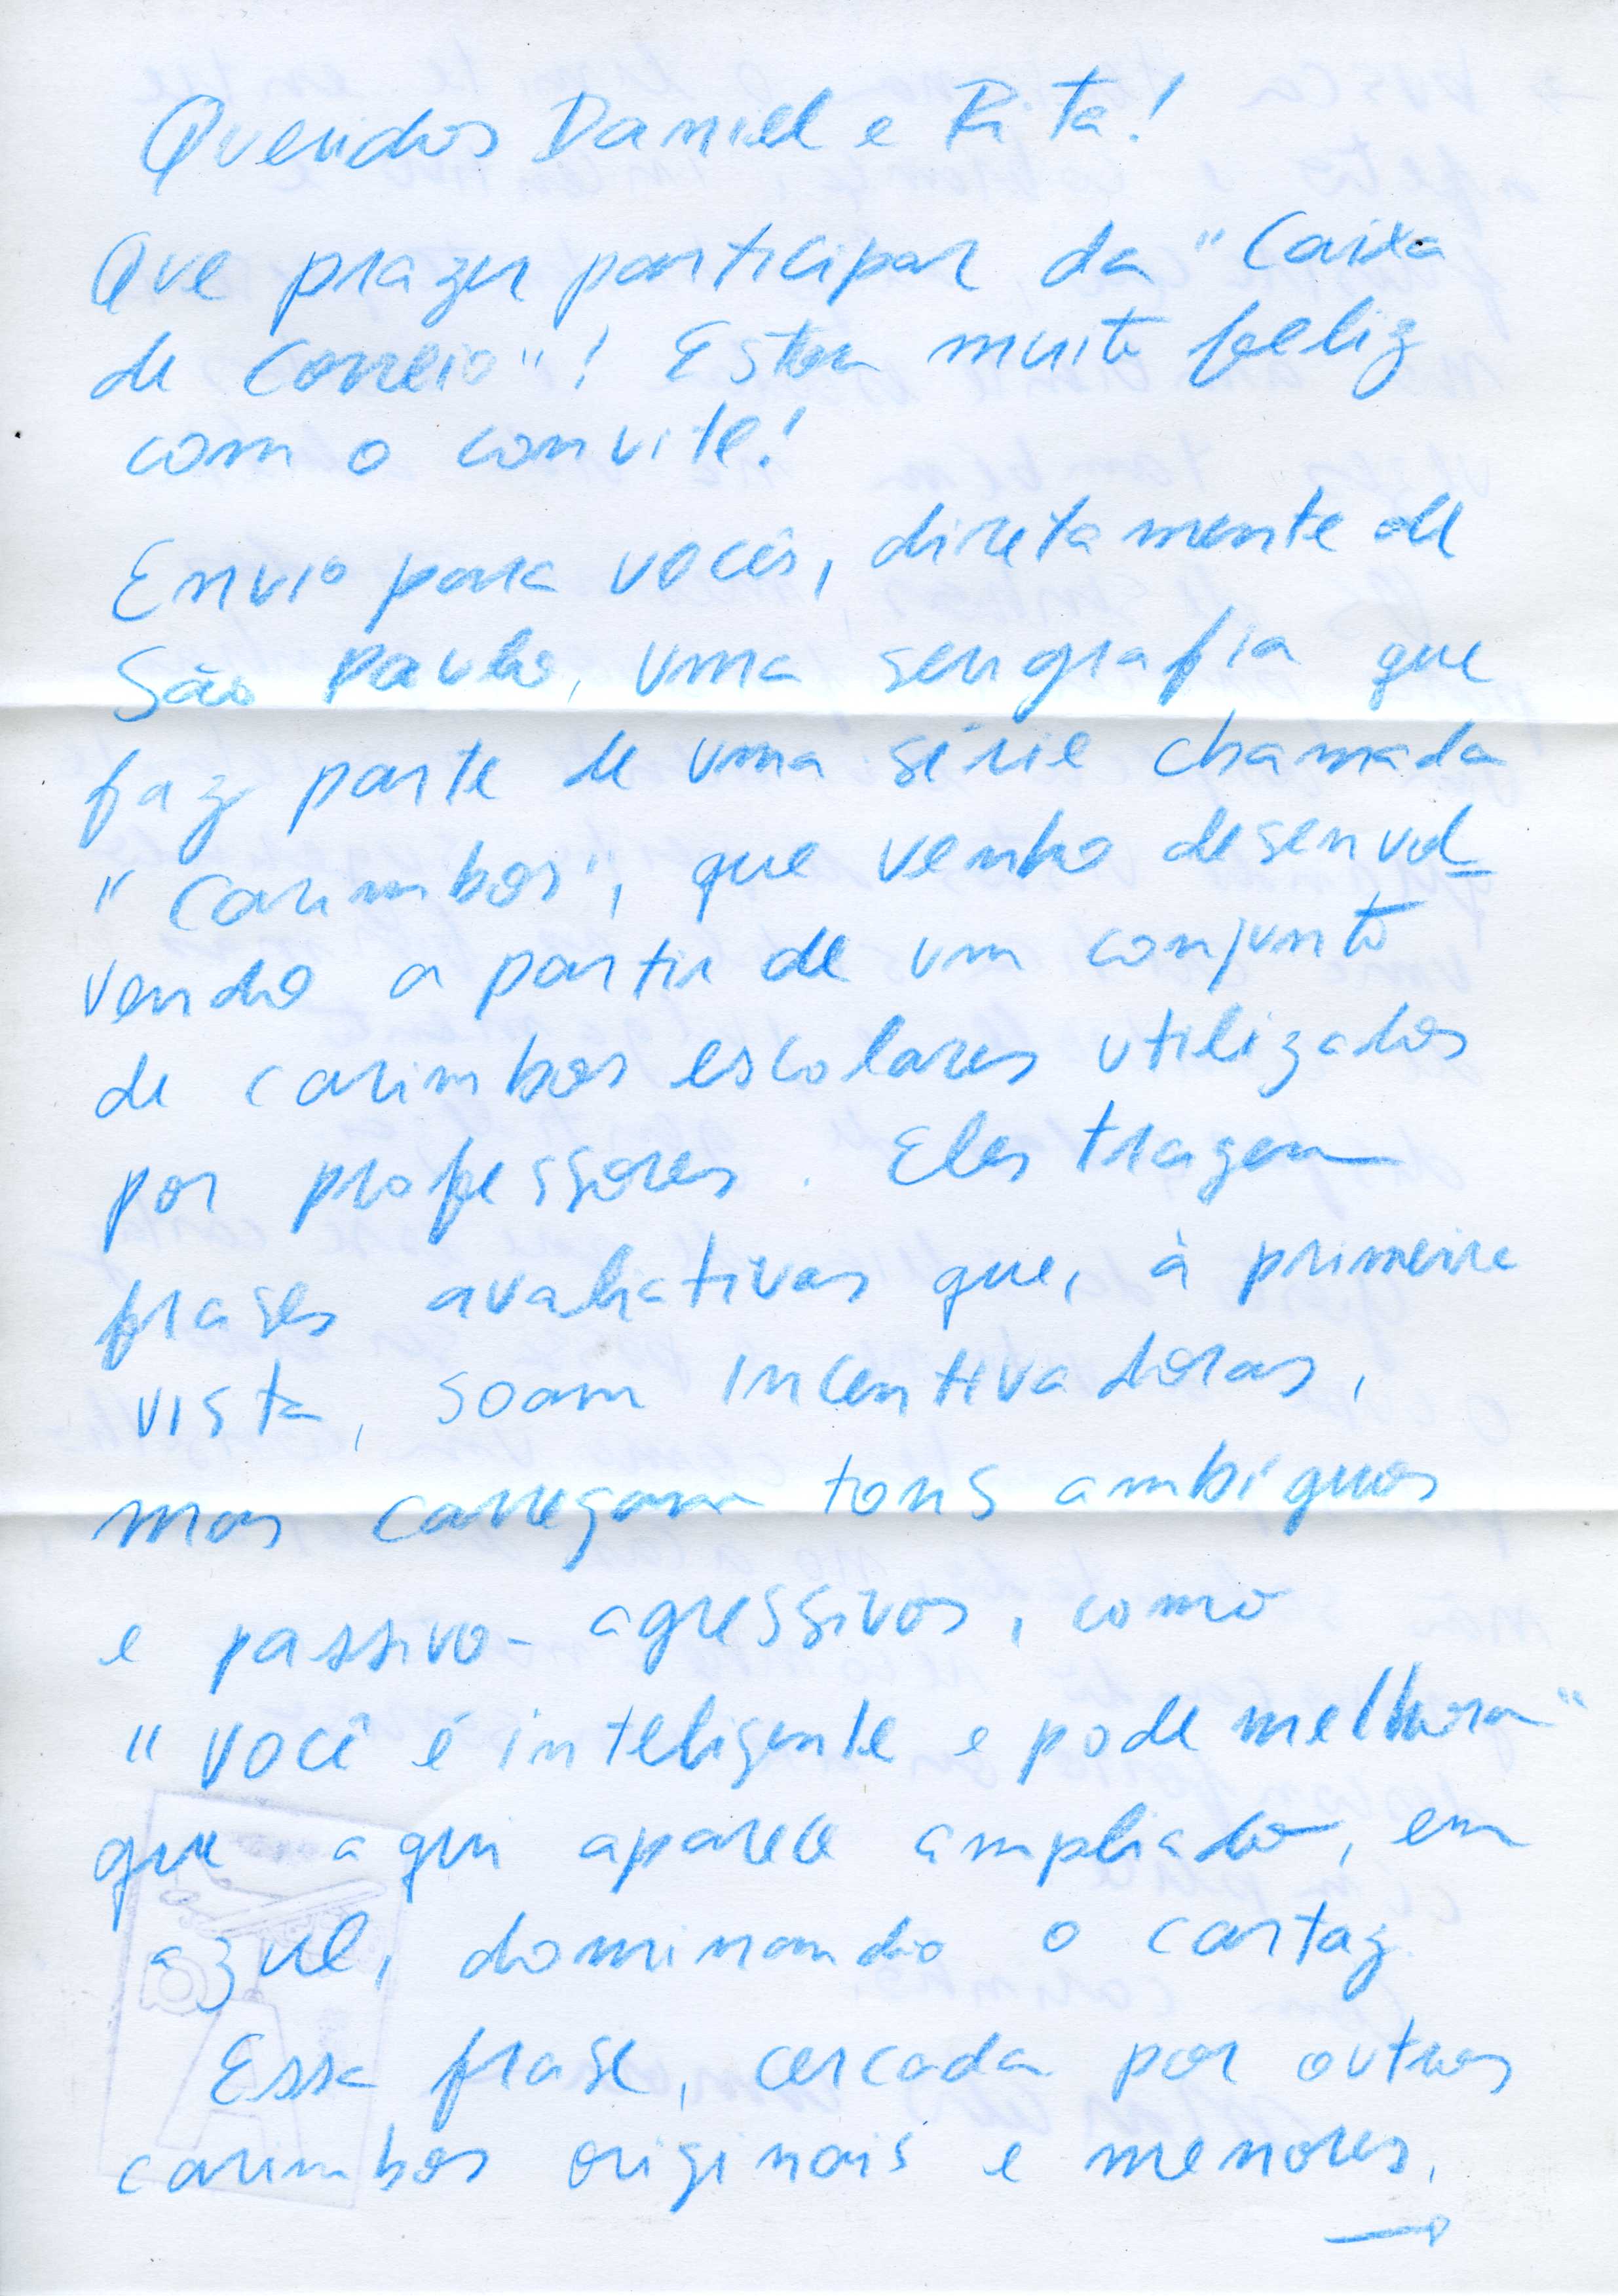 Queridos Daniel e Rita!
Que prazer participar da "Caixa
de Correio"! Estou muito feliz
com o convite!
Envio para vocês, diretamente de
São Paulo, uma serigrafia que
faz parte de uma série chamada
"Carimbos", que venho desenvol
vendo a partir de um conjunto
de carimbos escolares utilizados
por professores. Eles trazem
frases avaliativas que, à primeira
vista, soam incentivadoras,
mas carregam tons ambíguos
e passivo-agressivos, como
"Você é inteligente e pode melhorar"
que aqui aparece ampliado, em
azul, dominando o cartaz
Essa frase, cercada por outros
carimbos originais e menores,